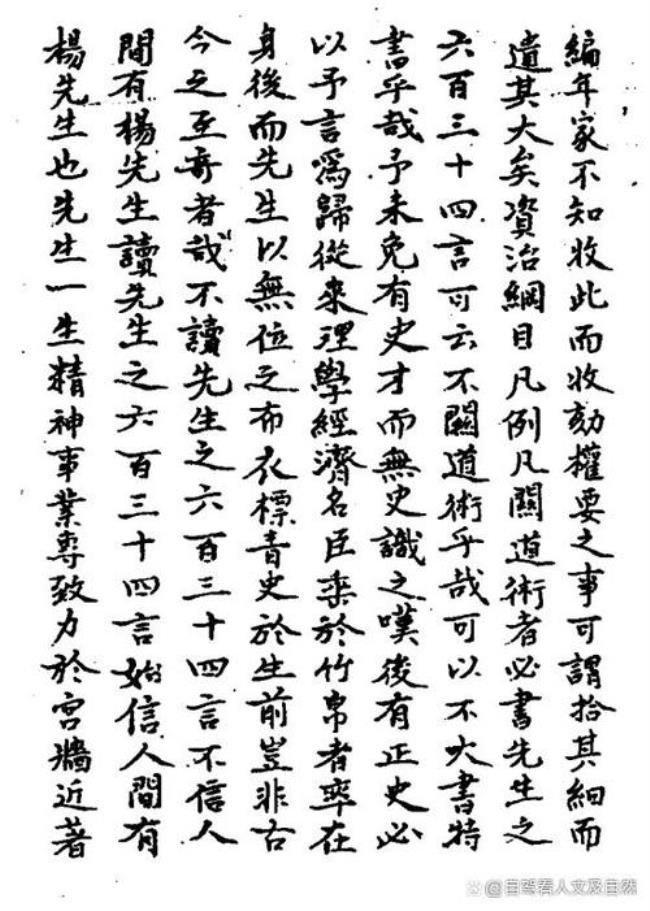 編年家不知收此而收劾權要之事可謂拾其細而
遺其大矣資治綱目凡例凡關道術者必書先生之
六百三十四言可云不關道術乎哉可以不大書特
書乎哉予未免有史才而無史識之嘆後有正史必
以予言爲歸從來理學經濟名臣垂於竹帛者率在
身後而先生以無位之布衣標青史於生前豈非古
今之至奇者哉不讀先生之六百三十四言不信人
間有楊先生讀先生之六百三十四言始信人間有
楊先生也先生一生精神事業專致力於宮牆近著
@自驾看人文及自然